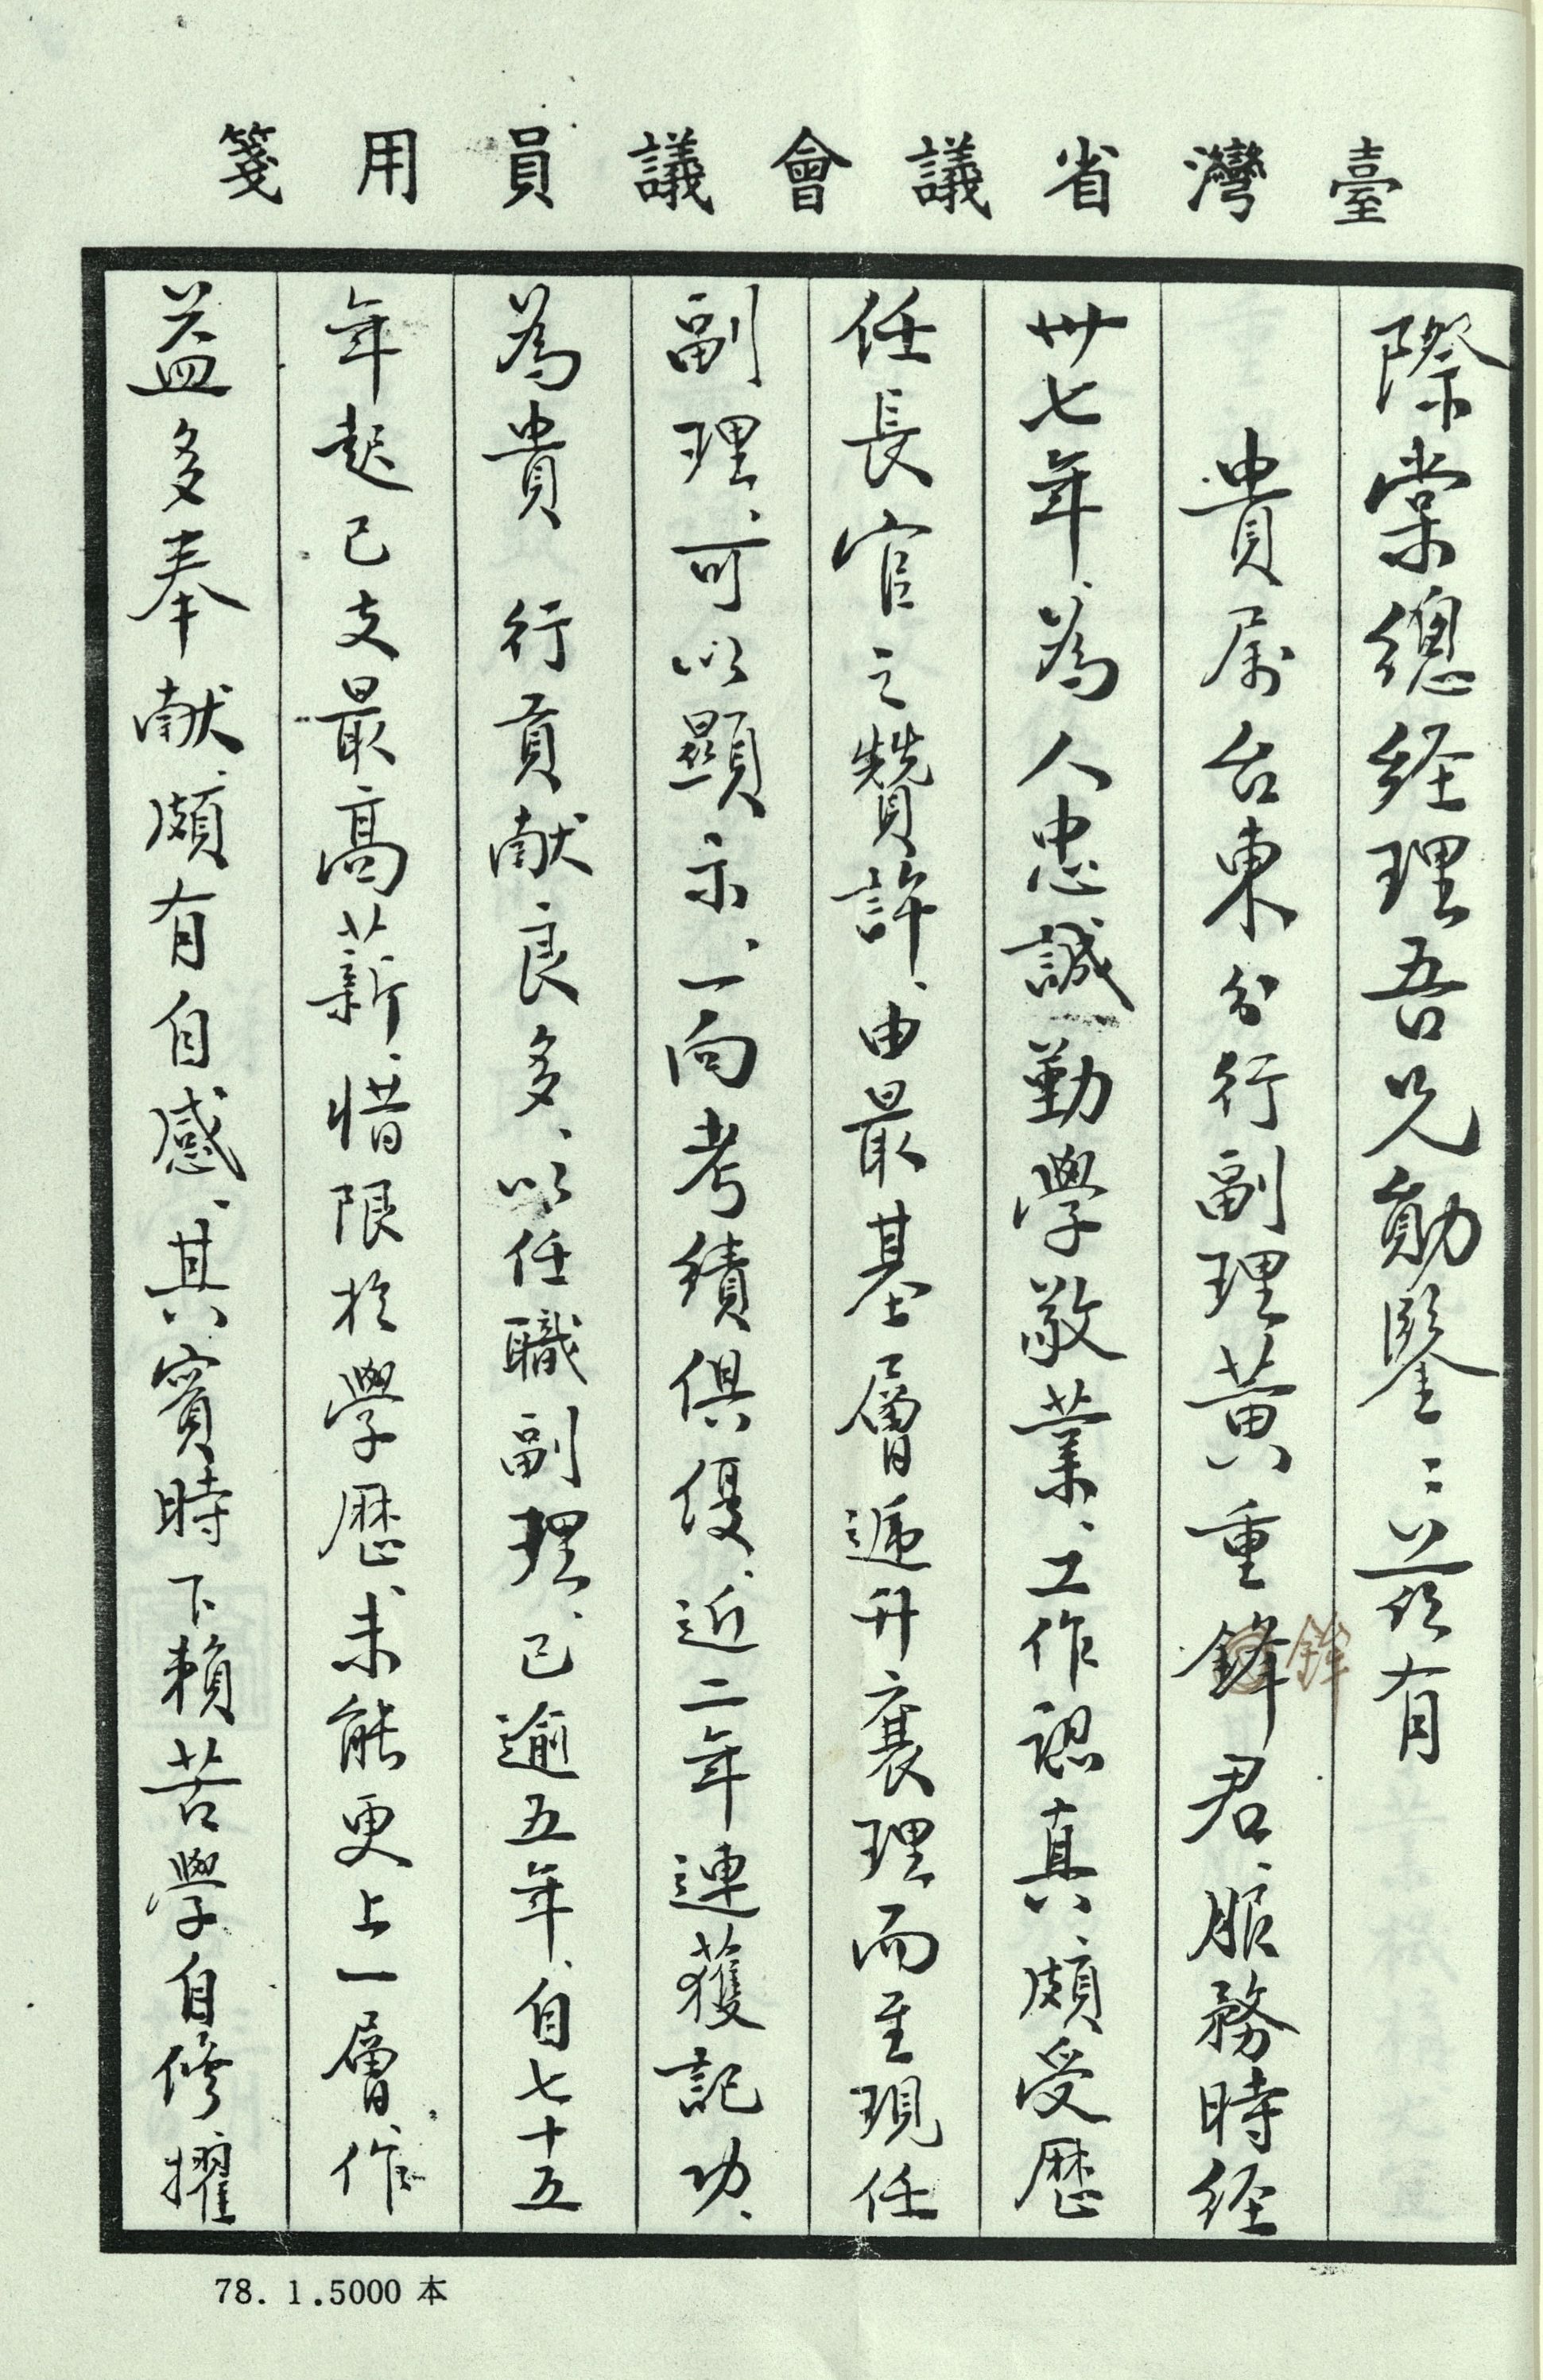 臺灣省議會議員用箋
際棠總经理吾兄勛鑒:兹有
貴属台東分行副理黃重鋒君、服務時経
鉾
卅七年、為人忠誠勤學敬業、工作認真、頗受歷
任長官之贊許、由最基層遞升襄理而至現任
副理、可以顯示、一向考績俱優、近二年連獲記功、
為貴 行貢献良多、以任職副理、已逾五年、自七十五
年起已支最高薪、惜限於學歷、未能更上一層、作
益多奉献、頗有自感、其實時下賴苦學自修擢
78. 1.5000 本